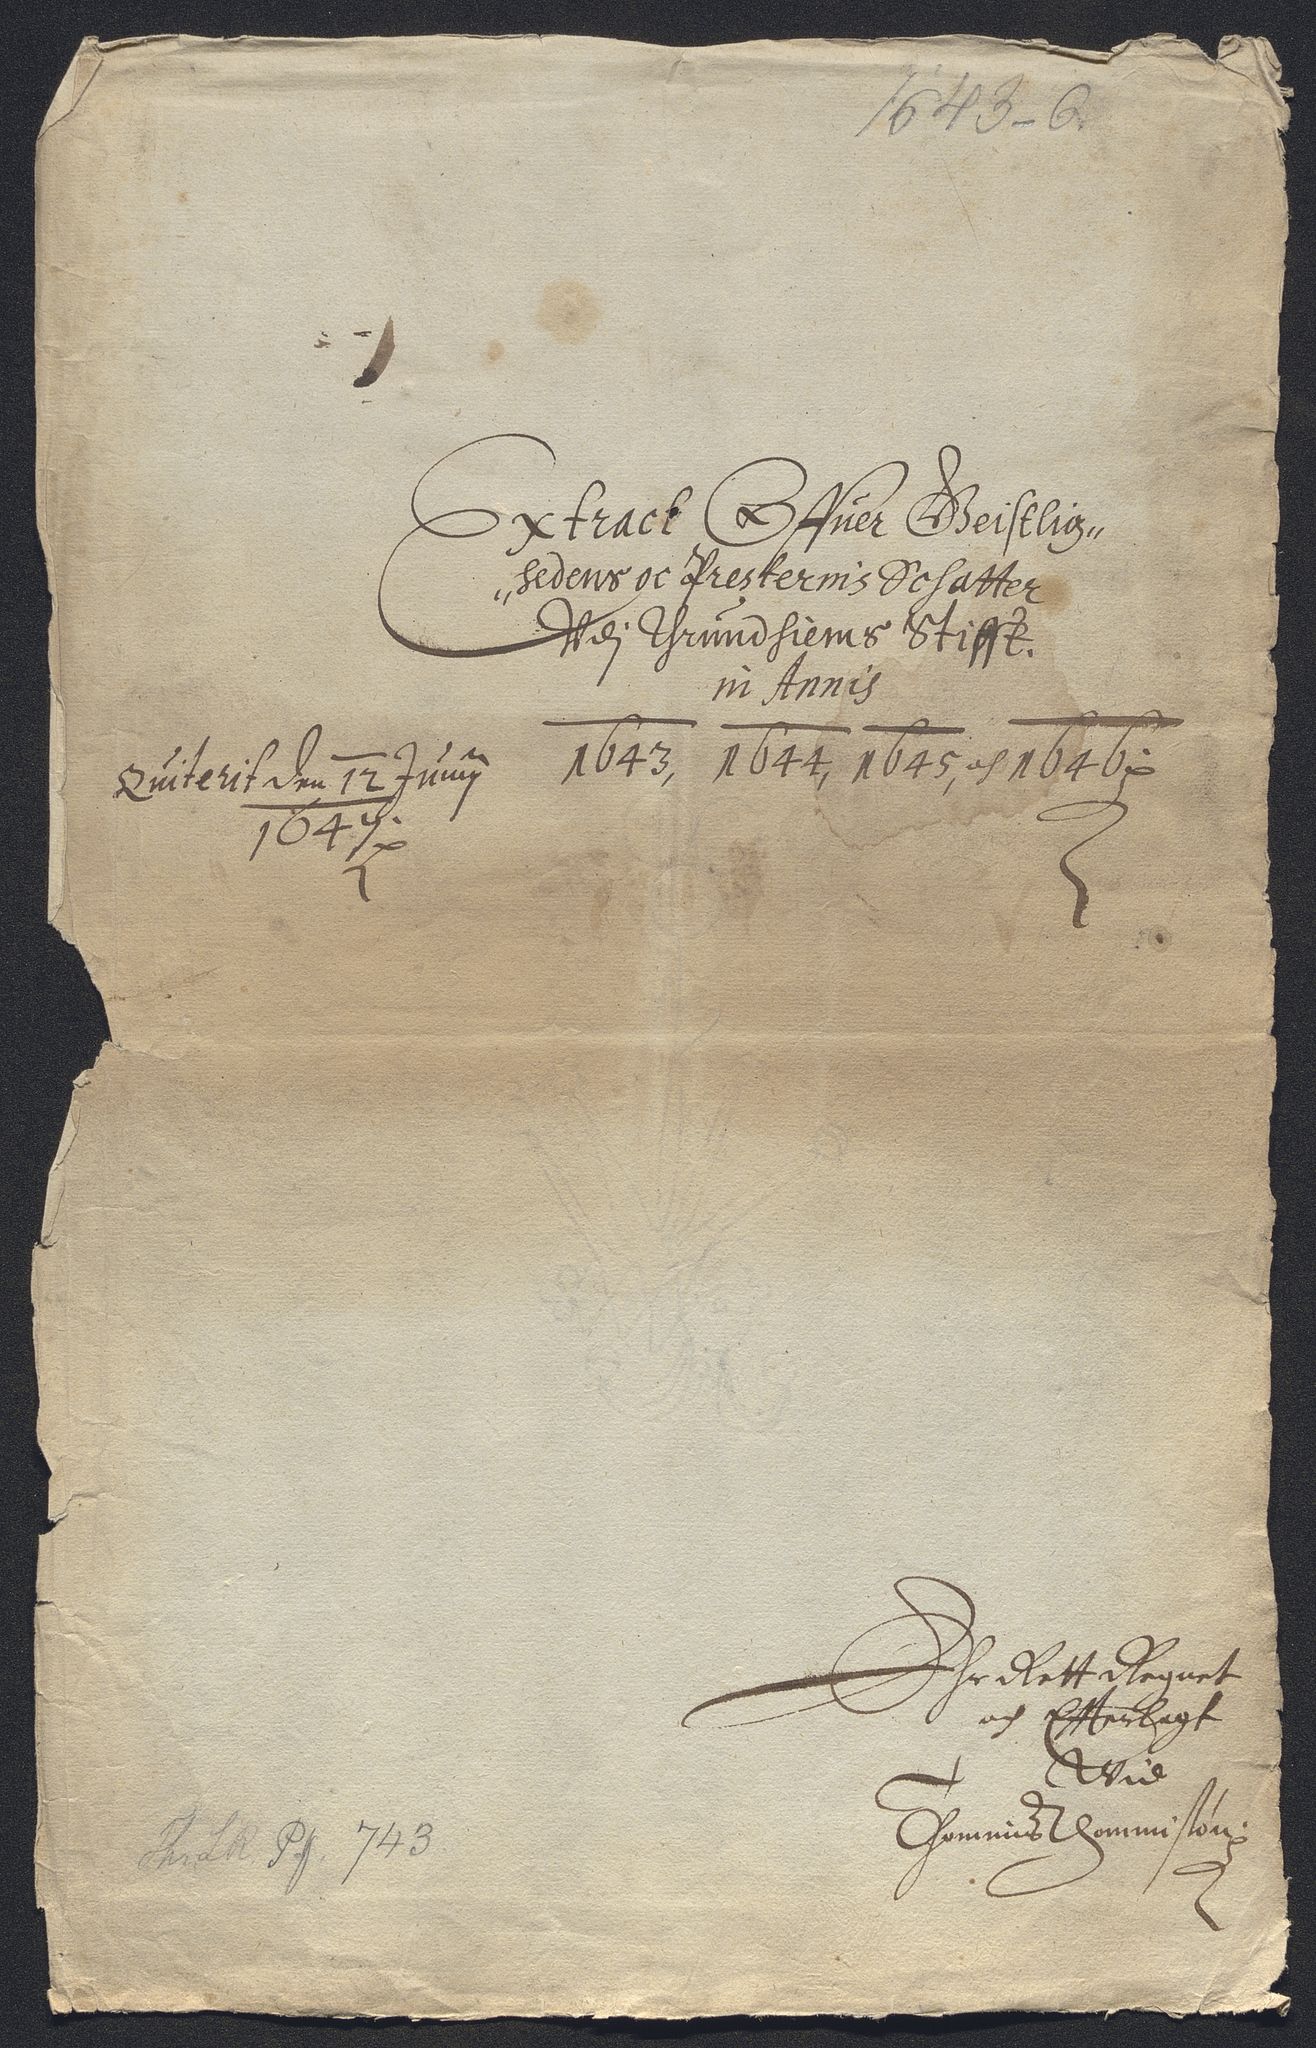 1643-6
Extract Offuer Geistlig„
„hedens oc Presternis Schatter
Vdj Thrundhiems Stifft.
in Annis
1643, 1644, 1645, och 1646.
Quiterit den 12 Junij
1647.
Ehr Rett Regnet
och Efferlagt
Wid
Thommis Thommisøn
Thr. LR. Pf. 743